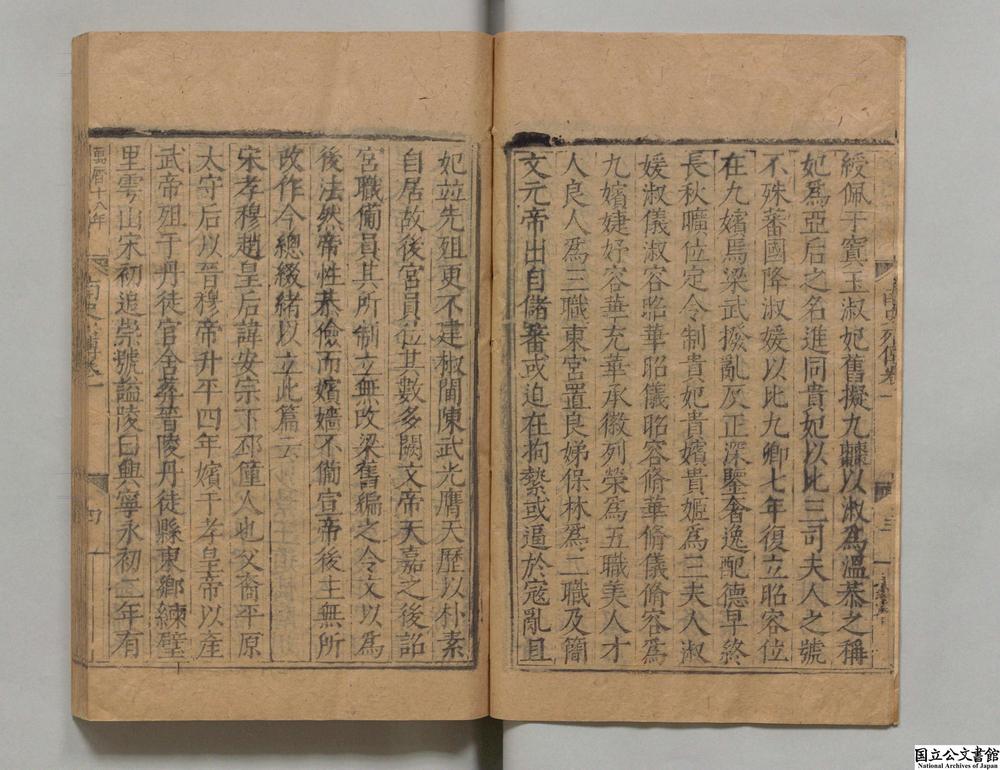 綬佩于寶玉淑妃舊擬九棘以淑為溫恭之稱
妃為亞后之名進同貴妃以比三司夫人之號
不殊蕃國降淑媛以比九卿七年復立昭容位
在九嬪焉梁武撥亂反正深鑒奢逸配德早終
長秋曠位定令制貴妃貴嬪貴姬為三夫人淑
媛淑儀淑容昭華昭儀昭容脩華脩儀脩容為
九嬪婕妤容華充華承徽列榮為五職美人才
人良人為三職東宮置良娣保林為二職及簡
文元帝出自儲蕃或迫在拘縶或逼於寇亂且
南史列傳卷一
三
妃竝先殂更不建椒閫陳武光膺天歷以朴素
自居故後宮員位其數多闕文帝天嘉之後詔
宮職備員其所制立無改梁舊編之令文以為
後法然帝性恭儉而嬪嬙不備宣帝後主無所
改作今總綴緒以立此篇云
宋孝穆趙皇后諱安宗下邳僮人也父裔平原
太守后以晉穆帝升平四年嬪于孝皇帝以產
武帝殂于丹徒官舍葬晉陵丹徒縣東鄉練璧
里雩山宋初追崇號謚陵曰興寧永初二年有
萬曆十八年
南史列傳卷一
四
国立公文書館
National Archives of Japan